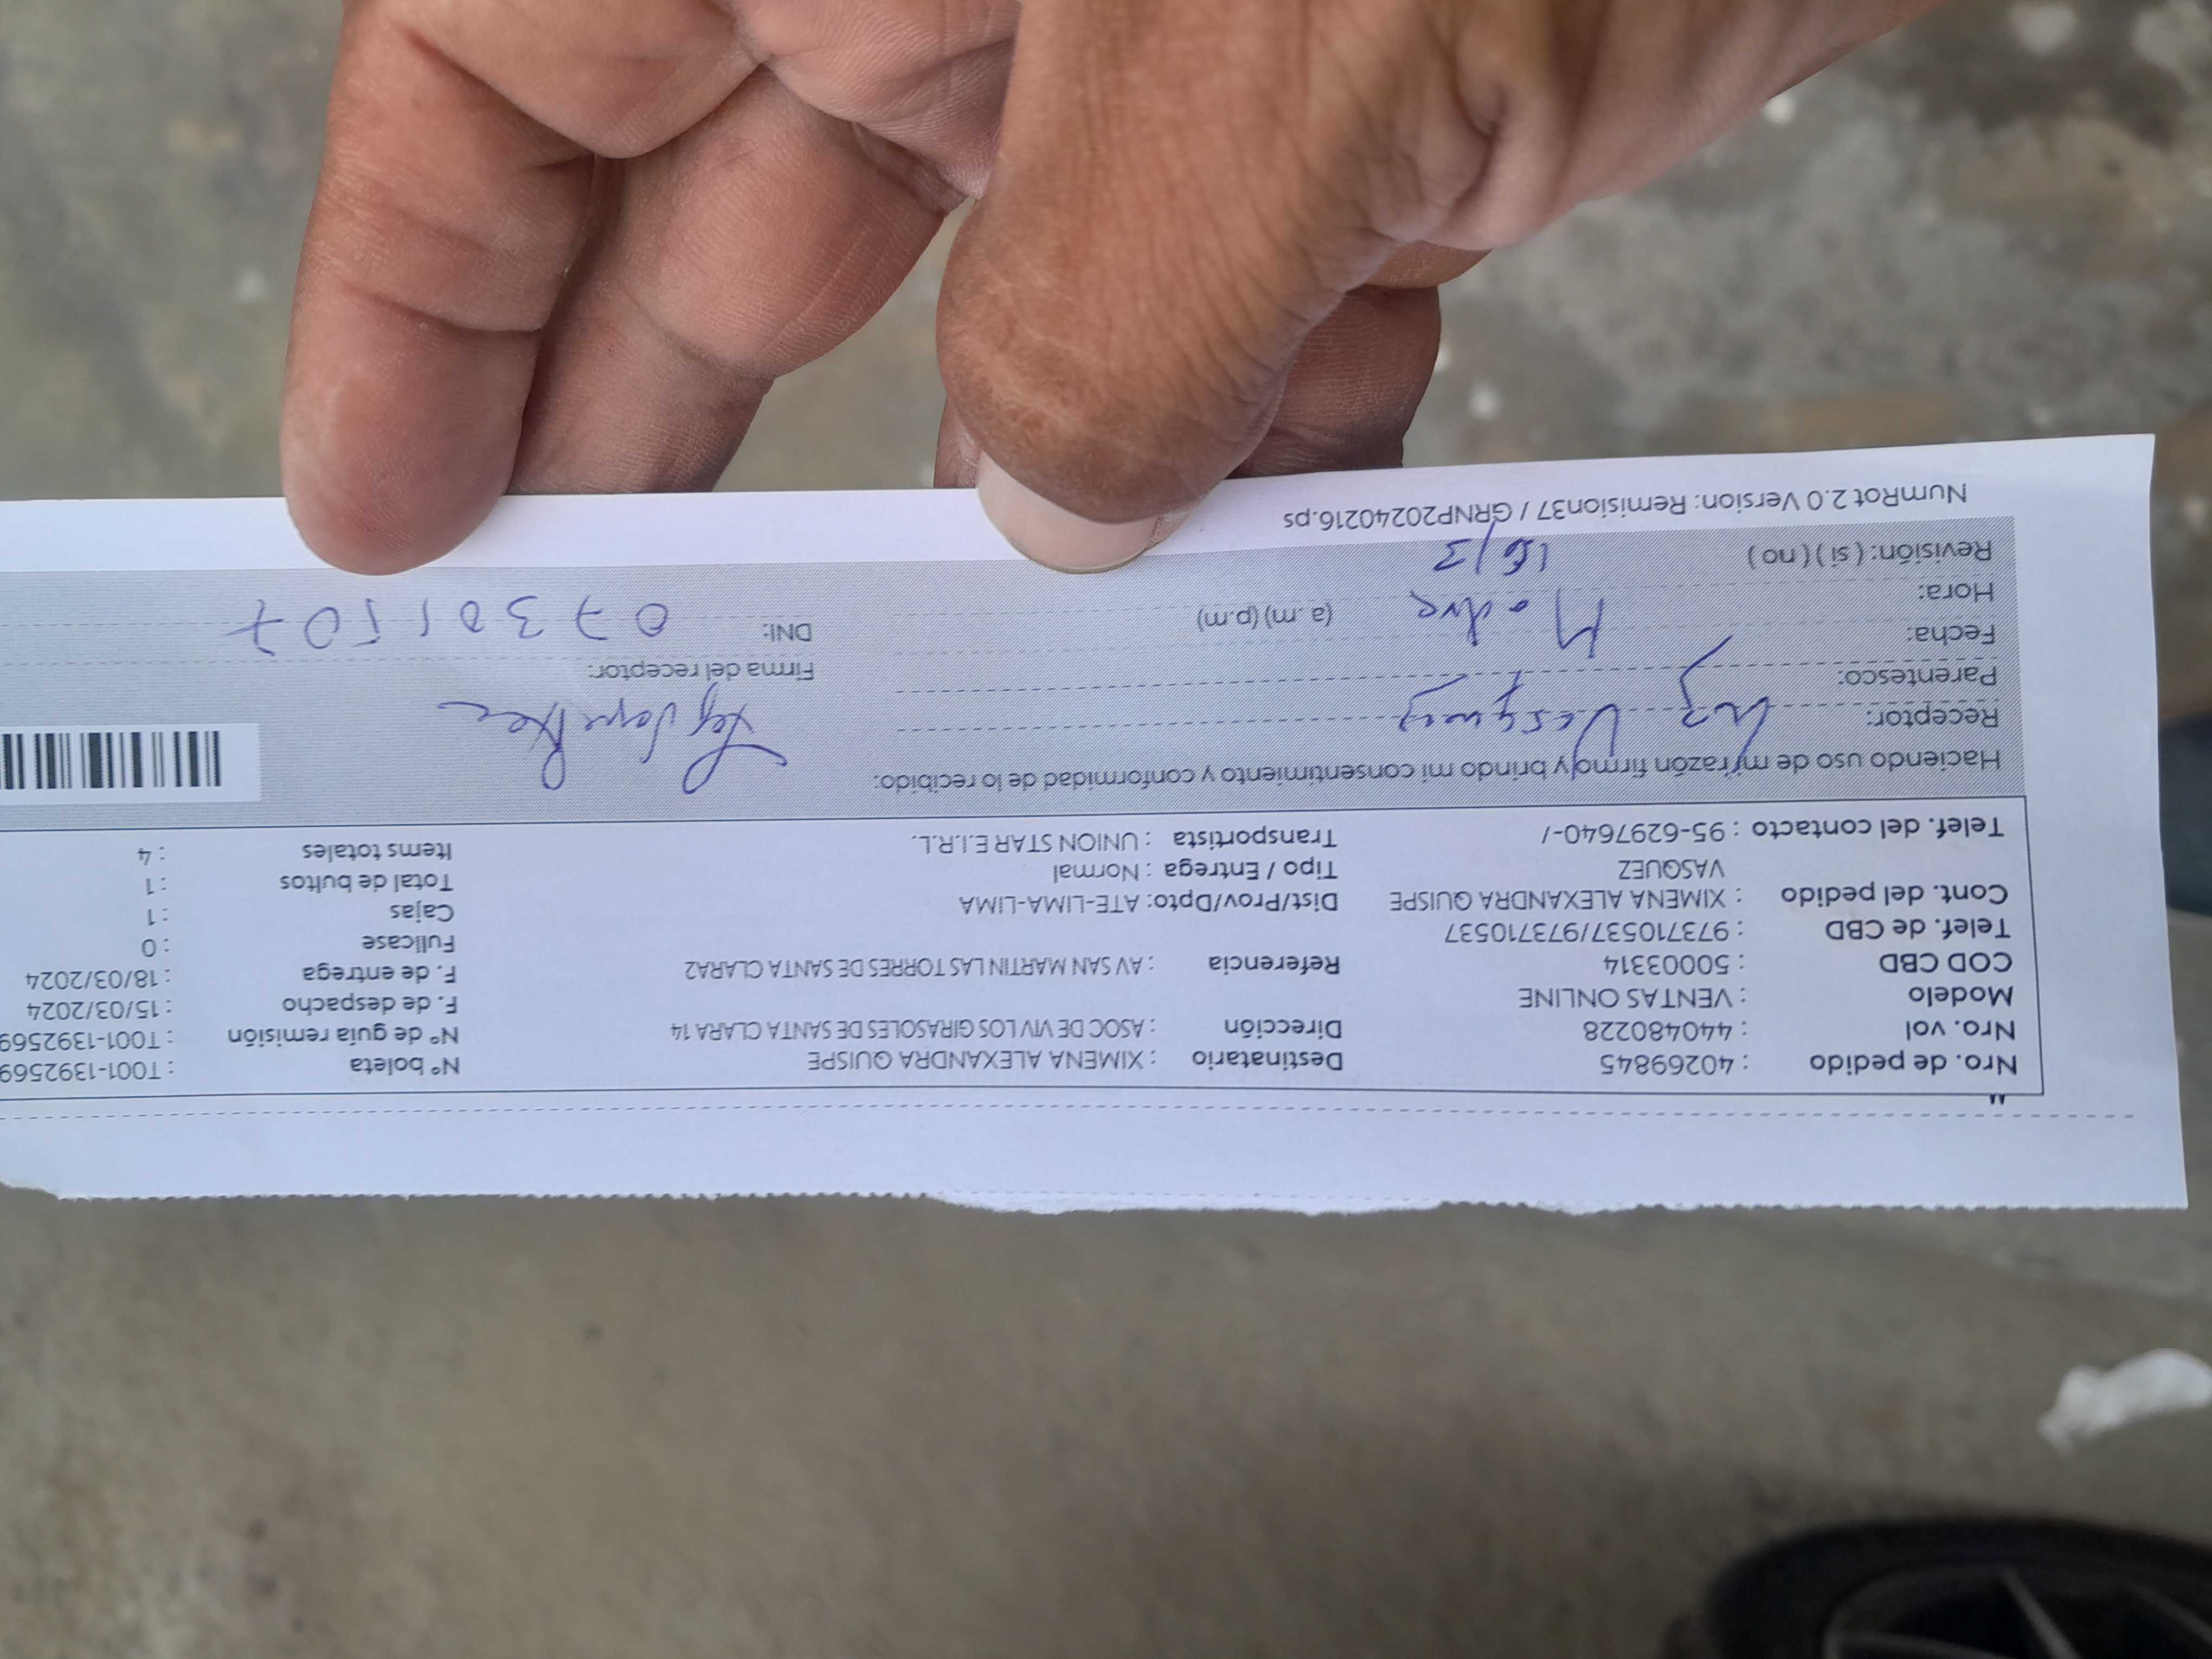 Nro. de pedido : 40269845 Destinatario : XIMENA ALEXANDRA QUISPE N° boleta : T001-1392569
Nro. vol : 440480228 Dirección : ASOC DE VIV LOS GIRASOLES DE SANTA CLARA 14 N° de guía remisión : T001-1392569
Modelo : VENTAS ONLINE F. de despacho : 15/03/2024
COD CBD : 50003314 Referencia : AV SAN MARTIN LAS TORRES DE SANTA CLARA2 F. de entrega : 18/03/2024
Telef. de CBD : 973710537/973710537 Fullcase : 0
Cont. del pedido : XIMENA ALEXANDRA QUISPE Dist/Prov/Dpto: ATE-LIMA-LIMA Cajas : 1
VASQUEZ Tipo / Entrega : Normal Total de bultos : 1
Telef. del contacto : 95-6297640-/ Transportista : UNION STAR E.I.R.L. Items totales : 4
Haciendo uso de mi razón firmo y brindo mi consentimiento y conformidad de lo recibido:
Receptor: Luz Vasquez
Parentesco: Firma del receptor:
Fecha: Madre DNI: 07301507
Hora: (a.m) (p.m)
Revisión: ( si ) ( no ) 16/3
NumRot 2.0 Version: Remision37 / GRNP20240216.ps